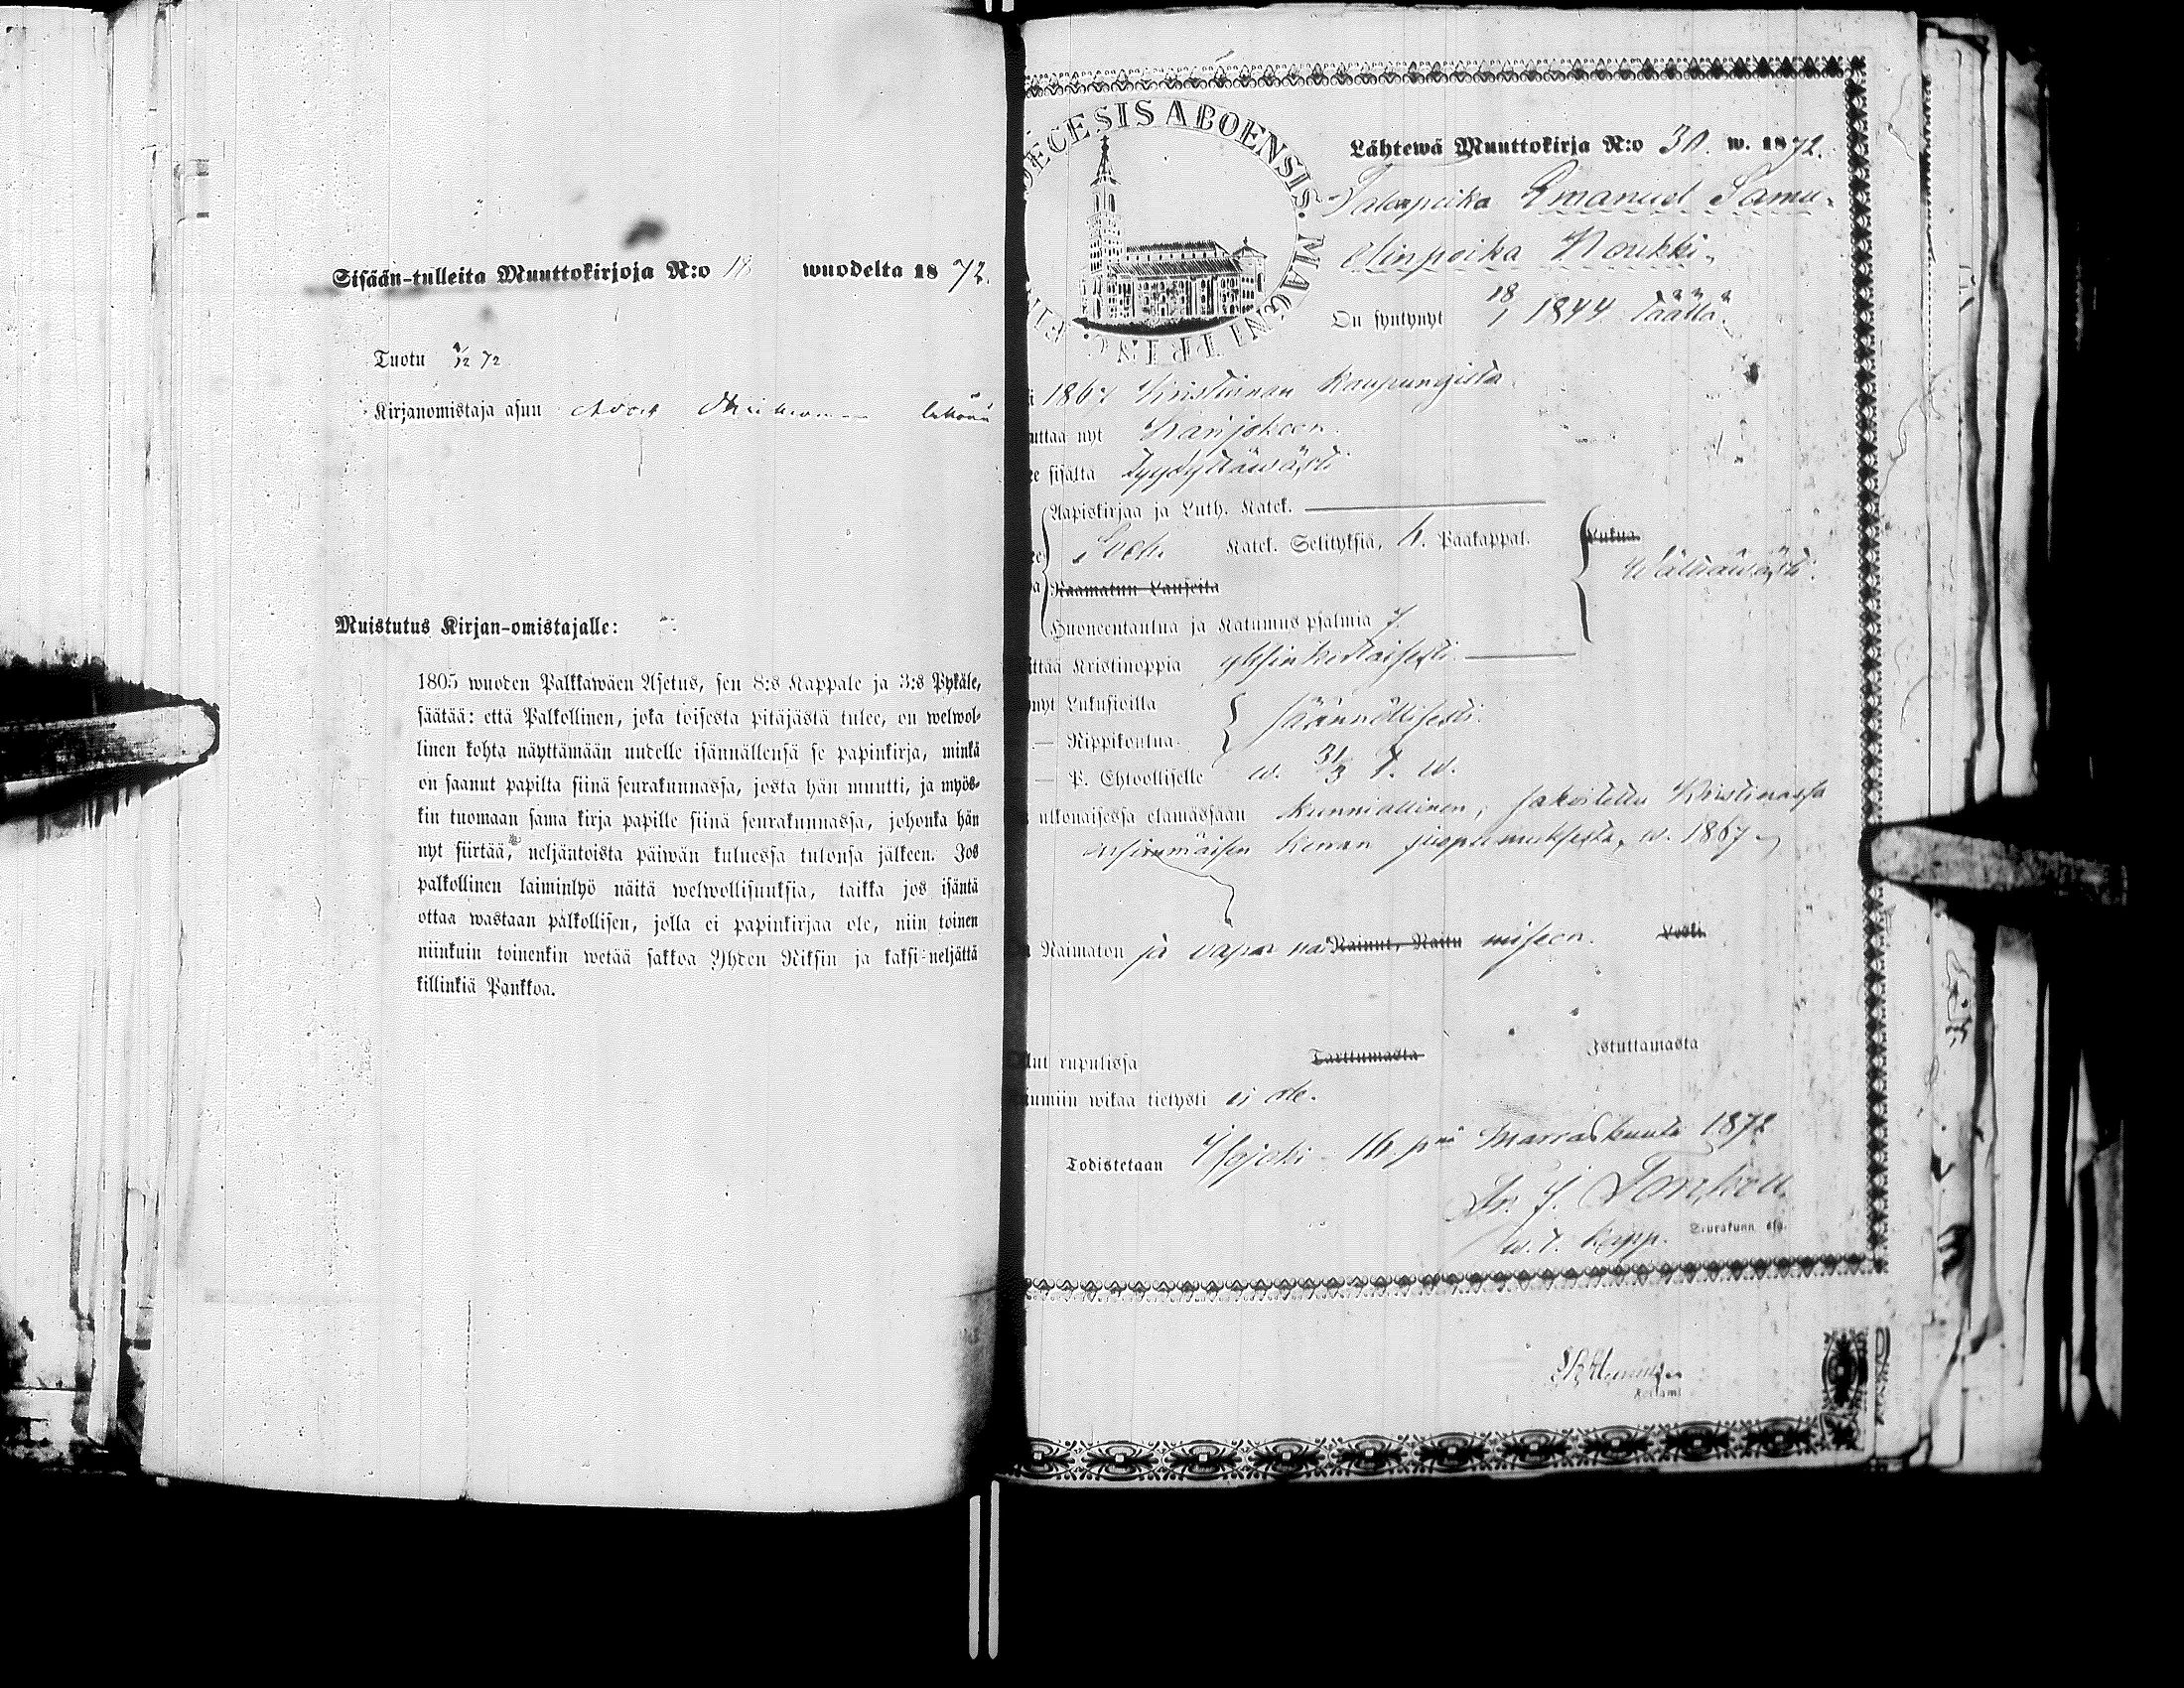 Sisään-tulleita Muuttokirjoja N:o 18 wuodelta 1872.
Tuotu 1/12 72
Kirjanomistaja asuu
Muistutus Kirjan-omistajalle:
1805 wuoden Palkkawäen Asetus, sen 8:s Kappale ja 3:s Pykäle,
säätää: että Palkollinen, joka toisesta pitäjästä tulee, on welwol-
linen kohta näyttämään uudelle isännällensä se papinkirja, minkä
on saanut papilta siinä seurakunnassa, josta hän muutti, ja myös-
kin tuomaan sama kirja papille siinä seurakunnassa, johonka hän
nyt siirtää, neljäntoista päiwän kuluessa tulonsa jälkeen. Jos
palkollinen laiminlyö näitä welwollisuuksia, taikka jos isäntä
ottaa wastaan palkollisen, jolla ei papinkirjaa ole, niin toinen
niinkuin toinenkin wetää sakkoa Yhden Riksin ja kaksi-neljättä
killinkiä Pankkoa.
DIECESIS ABOENSIS. MAGNI PRINC. FIN
Lähtewä Muuttokirja N:o 30. w. 1872.
Talonpoika Emanuel Samu-
elinpoika Koukki.
On syntynyt 18/1 1844 täällä.
1867 Kristiinan kaupungista
uttaa nyt Karijokeen.
sisältä tyydyttäwästi
Aapiskirjaa ja Luth. Katek.
Katek. Selityksiä, h. Pääkappal. Lukua
Wälttäwästi.
Raamatun Lauseita
Huoneentaulua ja Katumus psalmia 7.
ittää Kristinoppia yksinkertaisesti.
ynyt Lukusioilla
säännöllisesti.
— Rippikoulua.
— P. Ehtoolliselle w. 31/3 t. w.
ulkonaisessa elämässään kunniallinen; sakoitettu Kristinassa
ensimmäisen kerran juopumuksesta, w. 1867
Naimaton ja vapaa nai Nainut, Naitu miseen. Leski
lut rupulissa Tarttumasta Istuttamasta
umiin wikaa tietysti ei ole.
Todistetaan Isojoki 16 p:nä Marraskuuta 1872
w. t. kapp. Seurakunn. esp.